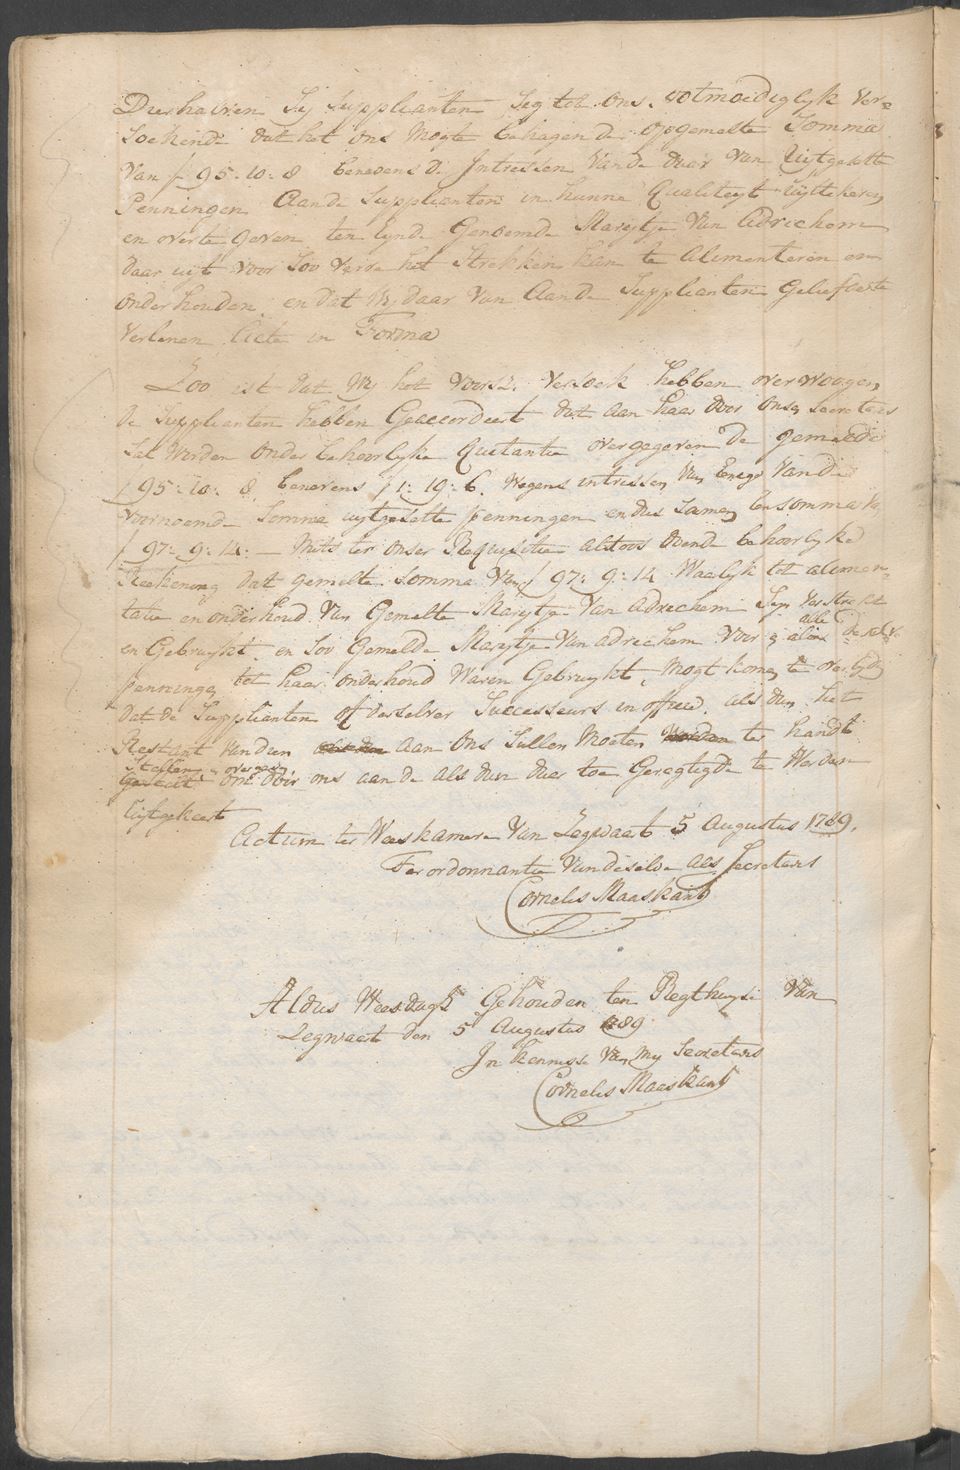 Dieshalven Sij Supplianten Sig tot Ons, ootmoediglijk ver-
soekende dat het ons Mogte behagen de opgemelte Somma
van ƒ 95:10:8 benevens de Intressen vande daar van Uijtgesette
Penningen Aande Supplianten in hunne Qualiteijt uijtte keren
en overte geven ten Eynde Genoemde Marijtje van Adrichem
daar uijt voor soo verre het Strekken kan te Alimenteren en
onderhouden, en dat Wij daar van Aande Supplianten geliefden te
verlenen Acte in Forma
Zoo ist dat Wij het voorsz. versoek hebben overwoogen,
de Supplianten hebben Geaccordeert dat aan haar door onsen Secretaris
Sal werden onder behoorlijke Quitantie overgegeven de gemelde
ƒ 95:10:8 benevens ƒ 1:19:6 wegens intressen van Enege vande
voornoemde Somma uijtgesette penningen en dus Samen ter somma van
ƒ 97:9:14 — Mits ter onser Requisitie altoos doende behoorlijke
Reekening dat gemelte Somma van ƒ 97:9:14 Waarlijk tot alimen-
tatie en onderhoud van Gemelte Marijtje van Adrichem Sijn verstrekt
en Gebruijkt, en soo Gemelde Marijtje van Adrichem voor alle deselve
penningen tot haar onderhoud Waren Gebruijkt, Mogt komen te overlijden
dat de Supplianten of derselver Successeurs in officio, als dan het
Restant van dien aan Ons Sullen Moeten ter handt
Stellen en overgeven om door ons aan de als dan daar toe Geregtigde te Werden
Uijtgekeert
Actum ter Weeskamere van Zegwaart 5 Augustus 1789.
Ter ordonnantie van deselve als Secretaris
Cornelis Maaskant
Aldus Weesdag Gehouden ten Regthuijse van
Zegwaart den 5 Augustus 1789
In Kennisse van mij Secretaris
Cornelis Maaskant